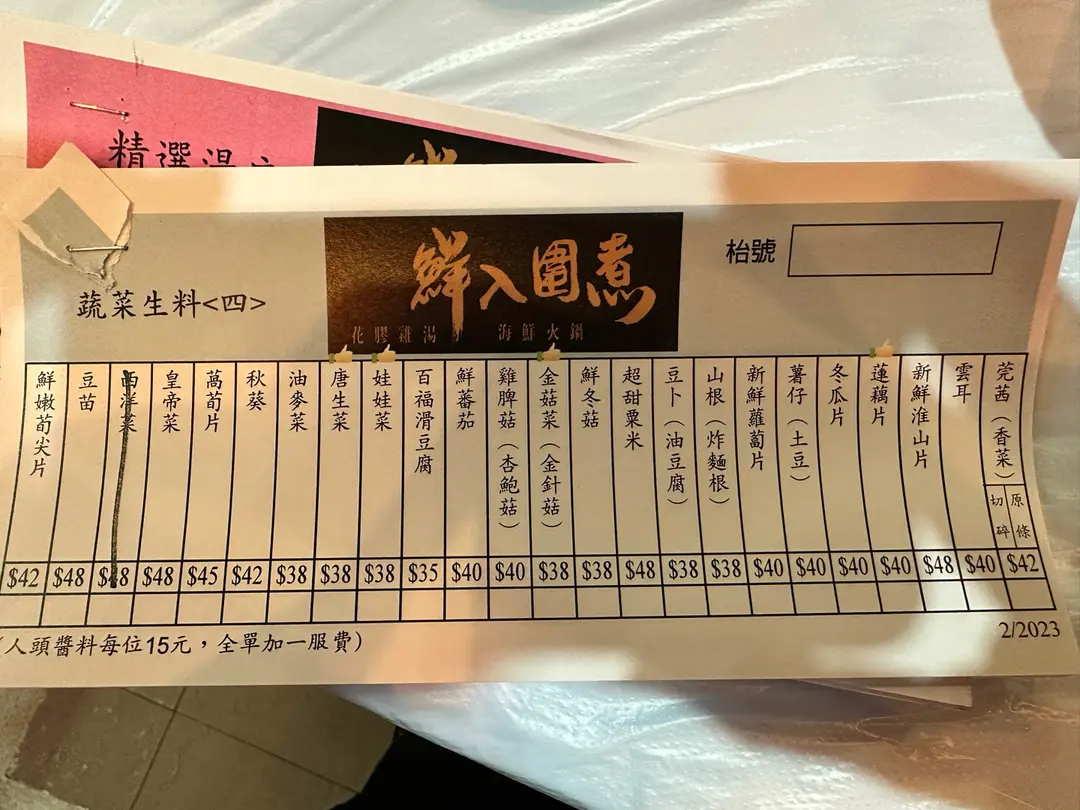 精選湯
鮮入圍煮
花膠雞湯 海鮮火鍋
枱號
蔬菜生料<四>
莞茜（香菜）
原條
切碎
$42
雲耳
$40
新鮮淮山片
$48
蓮藕片
$40
冬瓜片
$40
薯仔（土豆）
$40
新鮮蘿蔔片
$40
山根（炸麵根）
$38
豆卜（油豆腐）
$38
超甜粟米
$48
鮮冬菇
$38
金菇菜（金針菇）
$38
雞脾菇（杏鮑菇）
$40
鮮蕃茄
$40
百福滑豆腐
$35
娃娃菜
$38
唐生菜
$38
油麥菜
$38
秋葵
$42
萬荀片
$45
皇帝菜
$48
西洋菜
$48
豆苗
$48
鮮嫩荀尖片
$42
（人頭醬料每位15元，全單加一服費）
2/2023